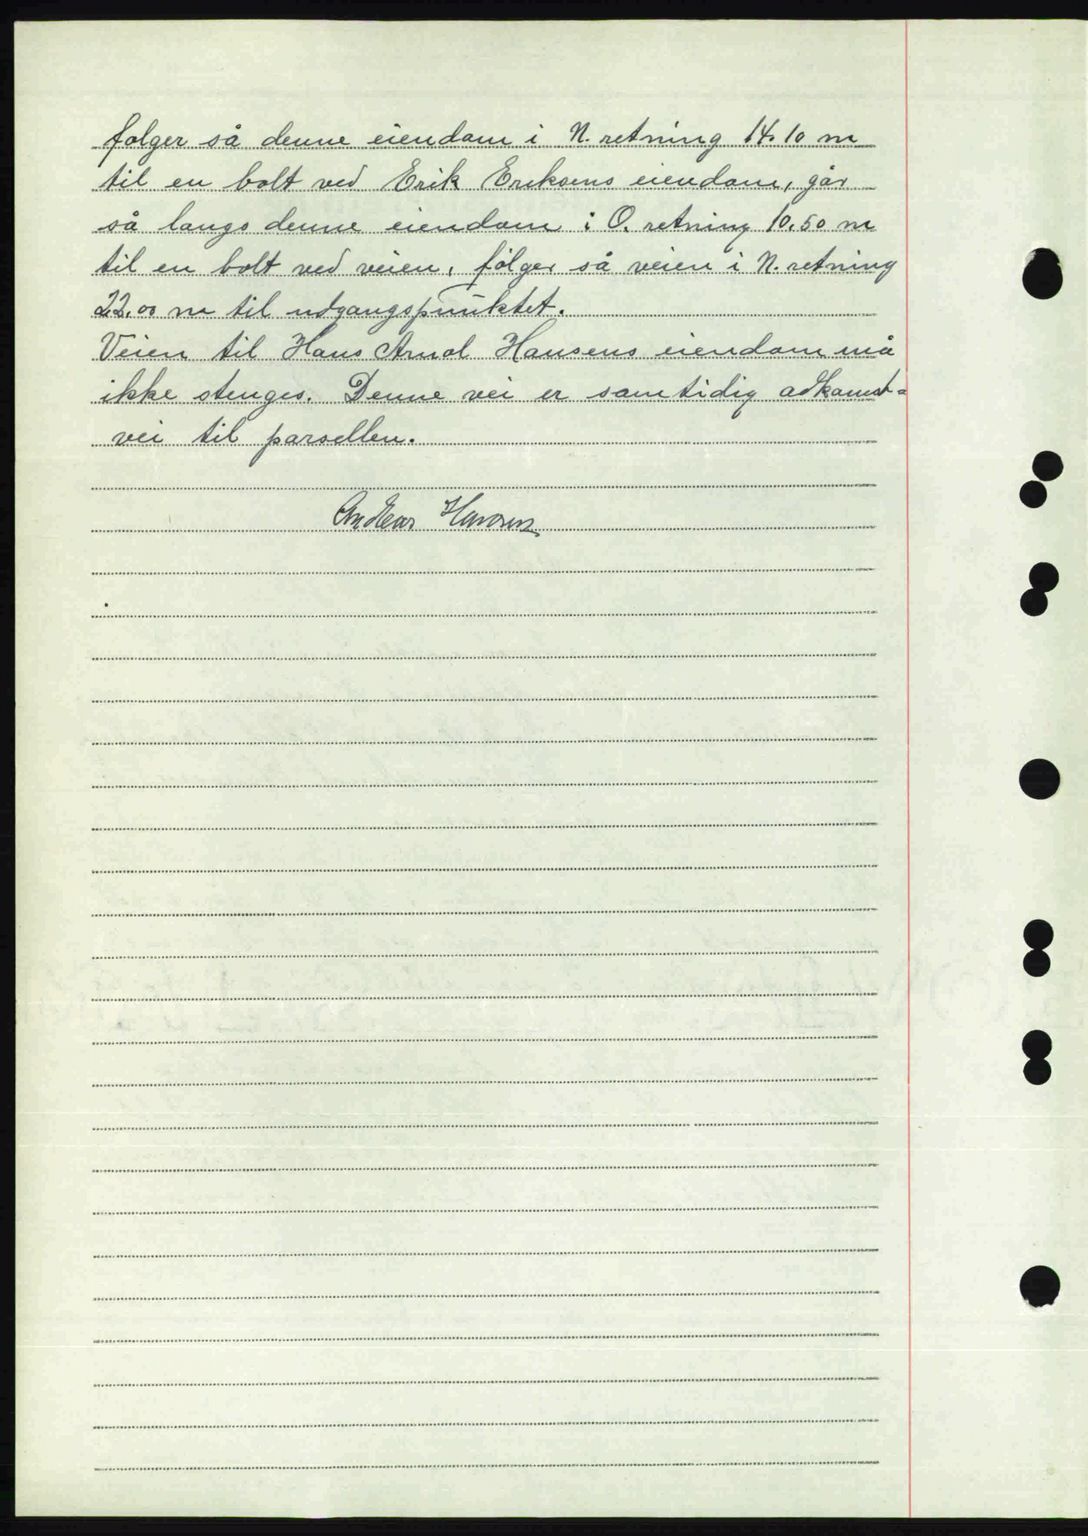 følger så denne eiendom i N. retning 14.10 m
til en bolt ved Erik Eriksens eiendom, går
så langs denne eiendom i O. retning 10.50 m
til en bolt ved veien, følger så veien i N. retning
22.00 m til utgangspunktet.
Veien til Hans Arnol Hansens eiendom må
ikke stenges. Denne vei er samtidig adkomst-
vei til parsellen.
Andreas Hansen